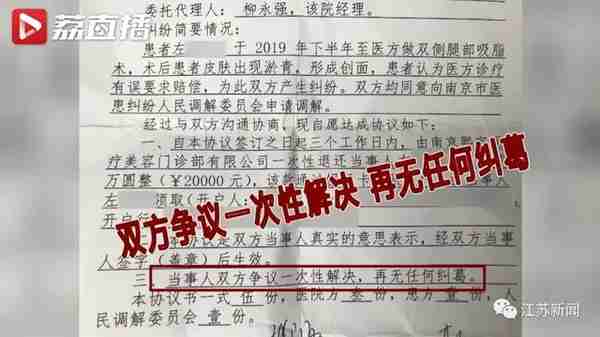 荔直播
委托代理人：柳永强，该院经理。
纠纷简要情况：
患者左 于 2019 年下半年至医方做双侧腿部吸脂
术，术后患者皮肤出现淤青，形成创面，患者认为医方诊疗
有误要求赔偿，为此双方产生纠纷。双方均同意向南京市医
患纠纷人民调解委员会申请调解。
经过与双方沟通协商，现自愿达成协议如下：
一、自本协议签订之日起三个工作日内，由南京
疗美容门诊部有限公司一次性退还当事人
万圆整（￥20000 元），
左 领取（开户人：
开户行
双方争议一次性解决 再无任何纠葛
协议是双方当事人真实的意思表示，经双方当事
人签字（盖章）后生效。
三、当事人双方争议一次性解决，再无任何纠葛。
本协议书一式 伍 份，医院方 叁 份，患方 壹 份，人
民调解委员会 壹 份。
江苏新闻